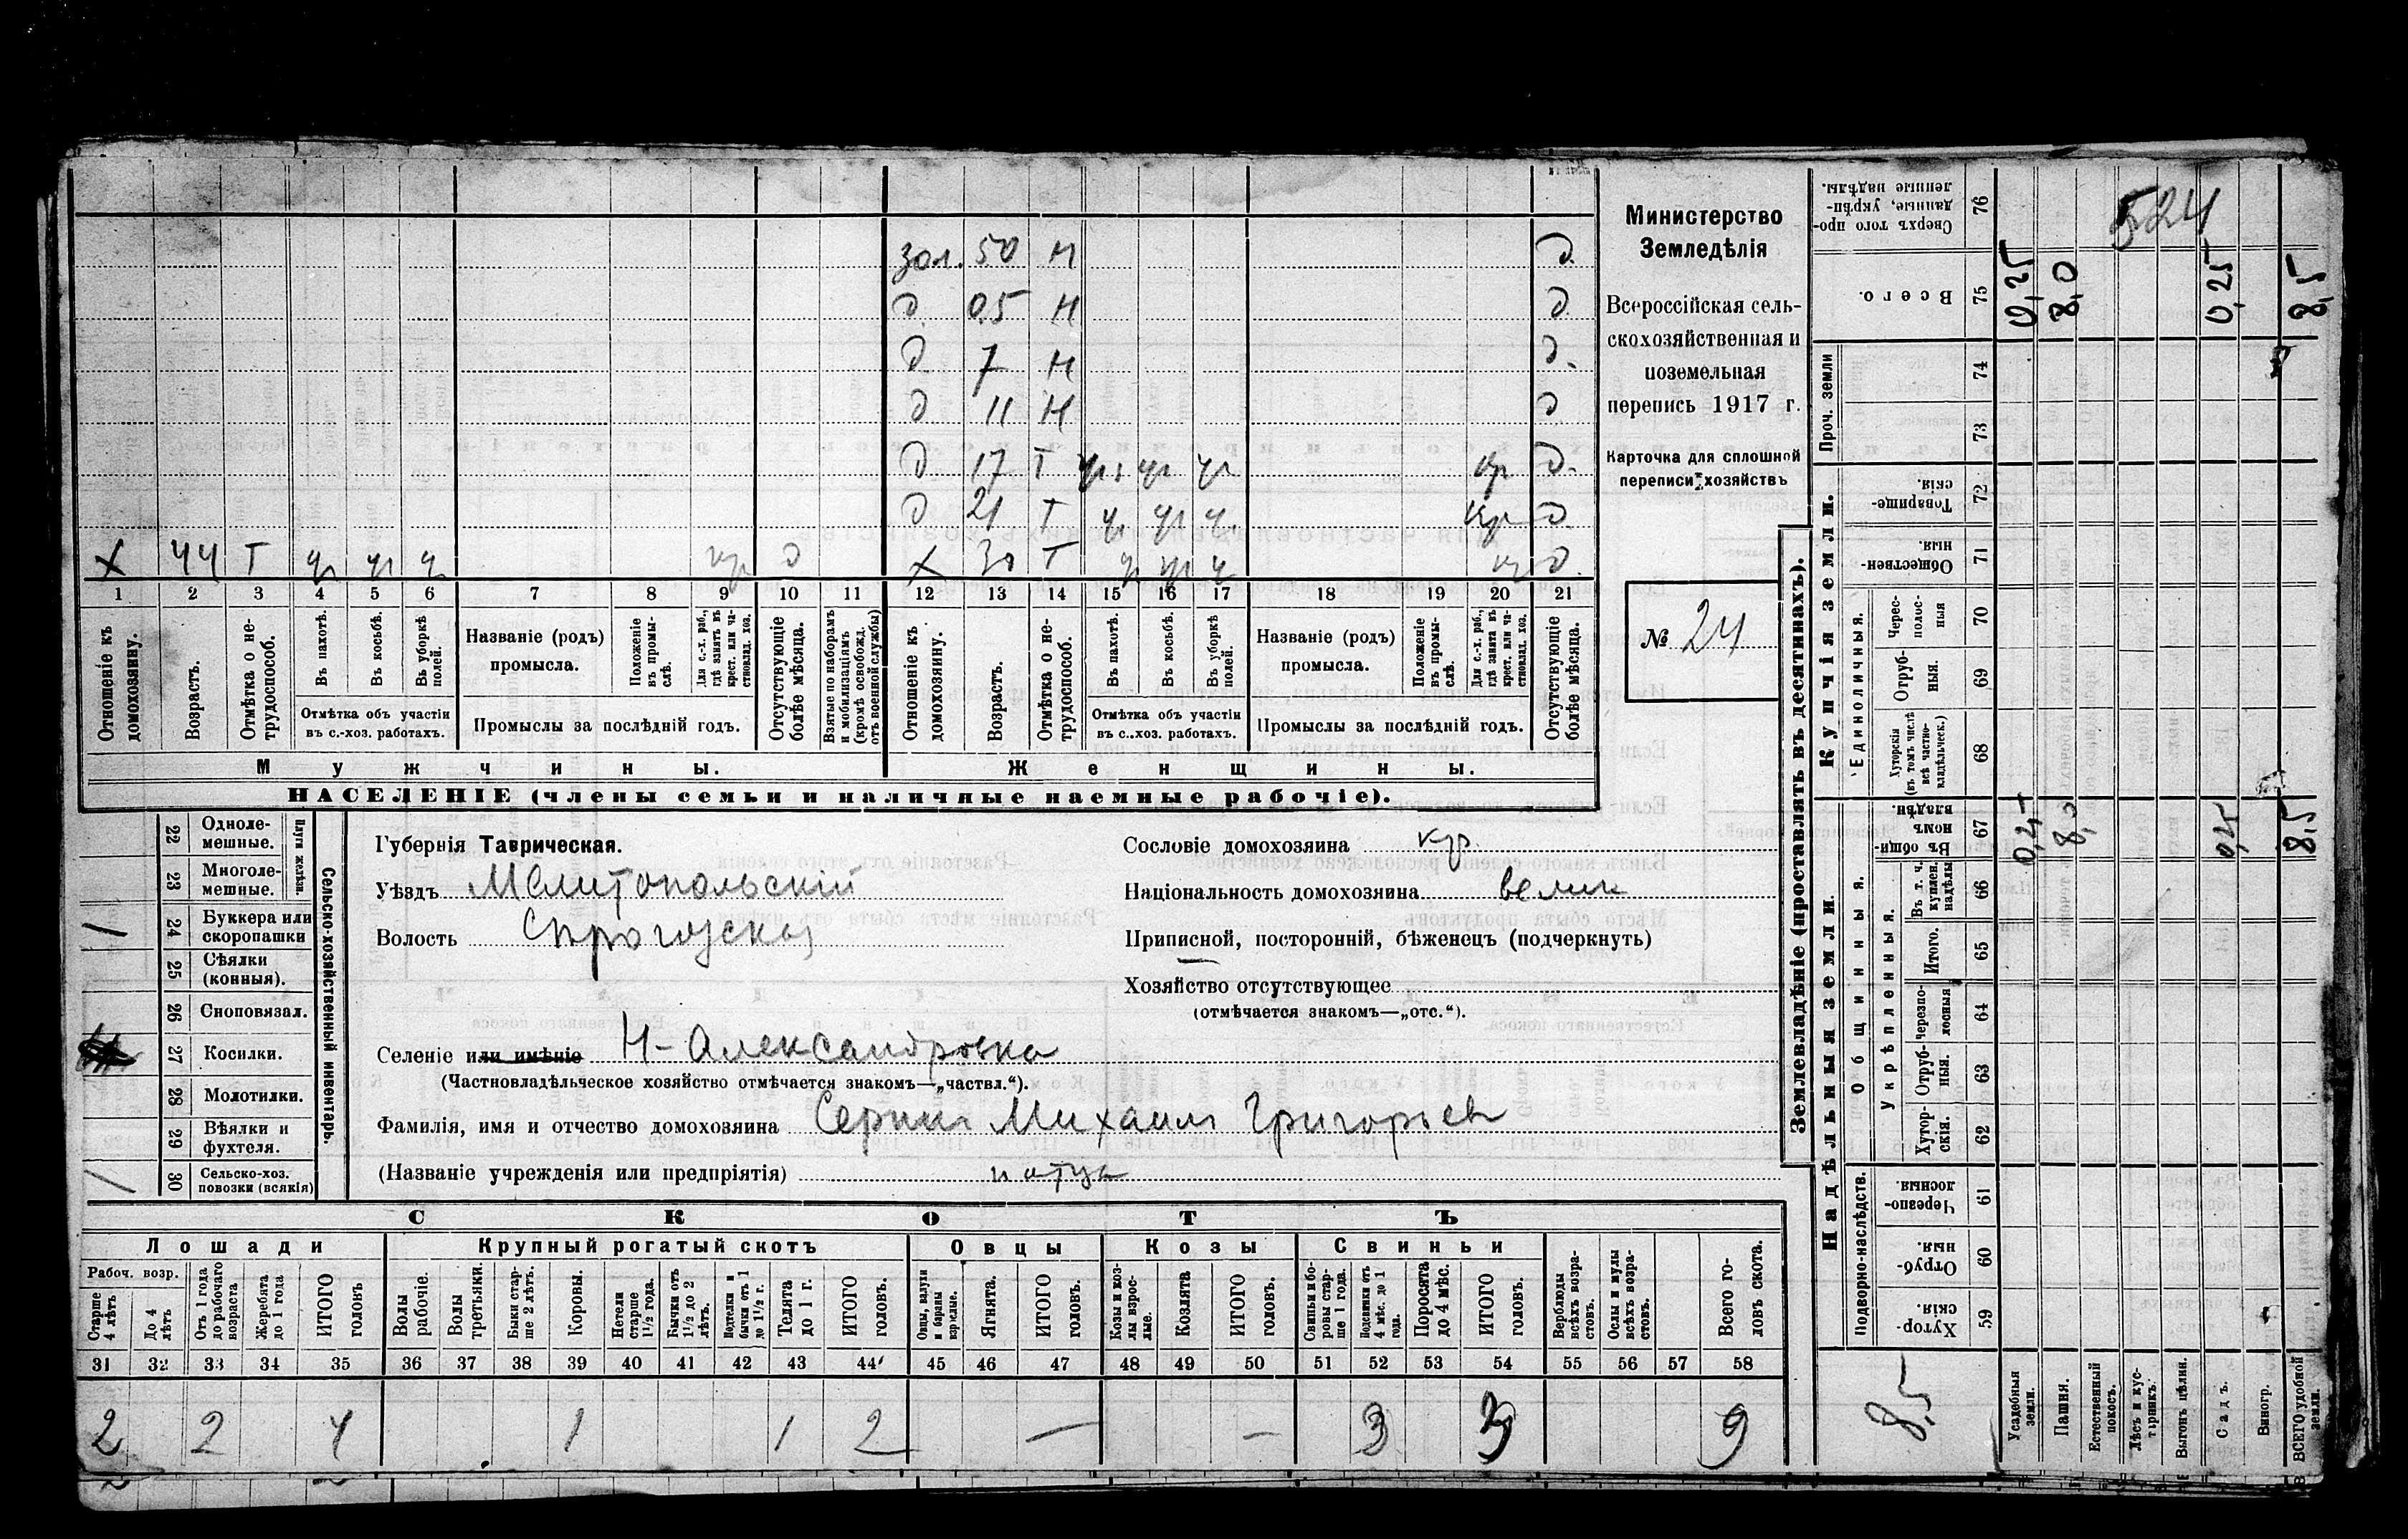 зол. 50 н д.
д 0,5 н д.
д 7 н д.
д 11 н д
д 17 т уч уч уч кр д.
д 21 т уч уч уч кр д
х 44 т уч уч уч кр д х 30 т уч уч уч кр д.
1 2 3 4 5 6 7 8 9 10 11 12 13 14 15 16 17 18 19 20 21
Отношеніе къ домохозяину.
Возрастъ.
Отмѣтка о нетрудоспособ.
Въ пахотѣ.
Въ косьбѣ.
Въ уборкѣ полей.
Отмѣтка объ участіи въ с.-хоз. работахъ.
Названіе (родъ) промысла.
Положеніе въ промыслѣ.
Для с.-х. раб., гдѣ занятъ въ крест. или частновлад. хоз.
Промыслы за послѣдній годъ.
Отсутствующіе болѣе мѣсяца.
Взятые по наборамъ и мобилизаціямъ (кромѣ освобожд. отъ военной службы)
Отношеніе къ домохозяину.
Возрастъ.
Отмѣтка о нетрудоспособ.
Въ пахотѣ.
Въ косьбѣ.
Въ уборкѣ полей.
Отмѣтка объ участіи въ с..хоз. работахъ.
Названіе (родъ) промысла.
Положеніе въ промыслѣ.
Для с.-х. раб., гдѣ занята въ крест. или частновлад. хоз.
Промыслы за послѣдній годъ.
Отсутствующіе болѣе мѣсяца.
Мужчины. Женщины.
НАСЕЛЕНІЕ (члены семьи и наличные наемные рабочіе).
Министерство
Земледѣлія
Всероссійская сель-
скохозяйственная и
поземельная
перепись 1917 г.
Карточка для сплошной
переписи хозяйствъ
№ 24
22 Одноле-мешные.
23 Многоле-мешные.
Плуги желѣзн.
24 Буккера или скоропашки /
25 Сѣялки (конныя).
26 Сноповязал.
27 Косилки.
28 Молотилки.
29 Вѣялки и фухтеля.
30 Сельско-хоз. повозки (всякія) /
Сельско-хозяйственный инвентарь.
Губернія Таврическая.
Уѣздъ Мелитопольскій
Волость
Селеніе или имѣніе Н-Александровка
(Частновладѣльческое хозяйство отмѣчается знакомъ—„частвл.“).
Фамилія, имя и отчество домохозяина Михаил Григорьев
(Названіе учрежденія или предпріятія)
Сословіе домохозяина кр.
Національность домохозяина велик
Приписной, посторонній, бѣженецъ (подчеркнуть)
Хозяйство отсутствующее
(отмѣчается знакомъ—„отс.“).
СКОТЪ
Лошади Крупный рогатый скотъ Овцы Козы Свиньи
Рабоч. возр.
Старше 4 лѣтъ
До 4 лѣтъ
Отъ 1 года до рабочаго возраста
Жеребята до 1 года
ИТОГО головъ
Волы рабочіе.
Волы третьяки.
Быки старше 2 лѣтъ.
Коровы.
Нетели старше 1½ года.
Бычки отъ 1½ до 2 лѣтъ.
Подтелки и бычки отъ 1 до 1½ г.
Телята до 1 г.
ИТОГО головъ.
Овцы, валухи и бараны взрослые.
Ягнята.
ИТОГО головъ.
Козы и козлы взрослые.
Козлята
ИТОГО головъ.
Свиньи и боровы старше 1 года.
Подсвинки отъ 4 мѣс. до 1 года.
Поросята до 4 мѣс.
ИТОГО головъ.
Верблюды всѣхъ возрастовъ.
Ослы и мулы всѣхъ возрастовъ.
Всего головъ скота.
31 32 33 34 35 36 37 38 39 40 41 42 43 44 45 46 47 48 49 50 51 52 53 54 55 56 57 58
2 2 4 1 1 2 — — 3 3 9
Землевладѣніе (проставлять въ десятинахъ).
Купчія земли.
Надѣльныя земли.
Сверхъ того проданные, укрѣпленные надѣлы. 76 524
Всего. 75 0,25 8,0 0,25 8,5
Проч. земли 74
73
Товарищескія. 72
Общественныя. 71
Единоличныя.
Черес-полосныя 70
Отрубныя. 69
Хуторскія (въ томъ числѣ всѣ частновладѣльческ.) 68
Въ общинномъ владѣн. 67 0,25 8,0 0,25 8,5
Общинныя.
Укрѣпленныя.
Въ т. ч. куплен. надѣлы 66
Итого. 65
Черезполосныя 64
Отрубныя. 63
Хуторскія. 62
Подворно-наслѣдств.
Черезполосныя. 61
Отрубныя. 60
Хуторскія. 59
8,5
Усадебныя земли.
Пашня.
Естественный покосъ.
Лѣсъ и кустарникъ.
Выгонъ цѣлин.
Садъ.
Виногр.
ВСЕГО удобной земли.